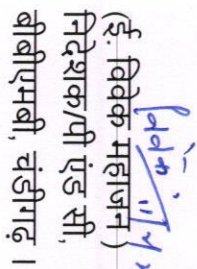 (इं. विवेक महाजन)
निदेशक/पी एंड सी,
बीबीएमबी, चंडीगढ़ ।